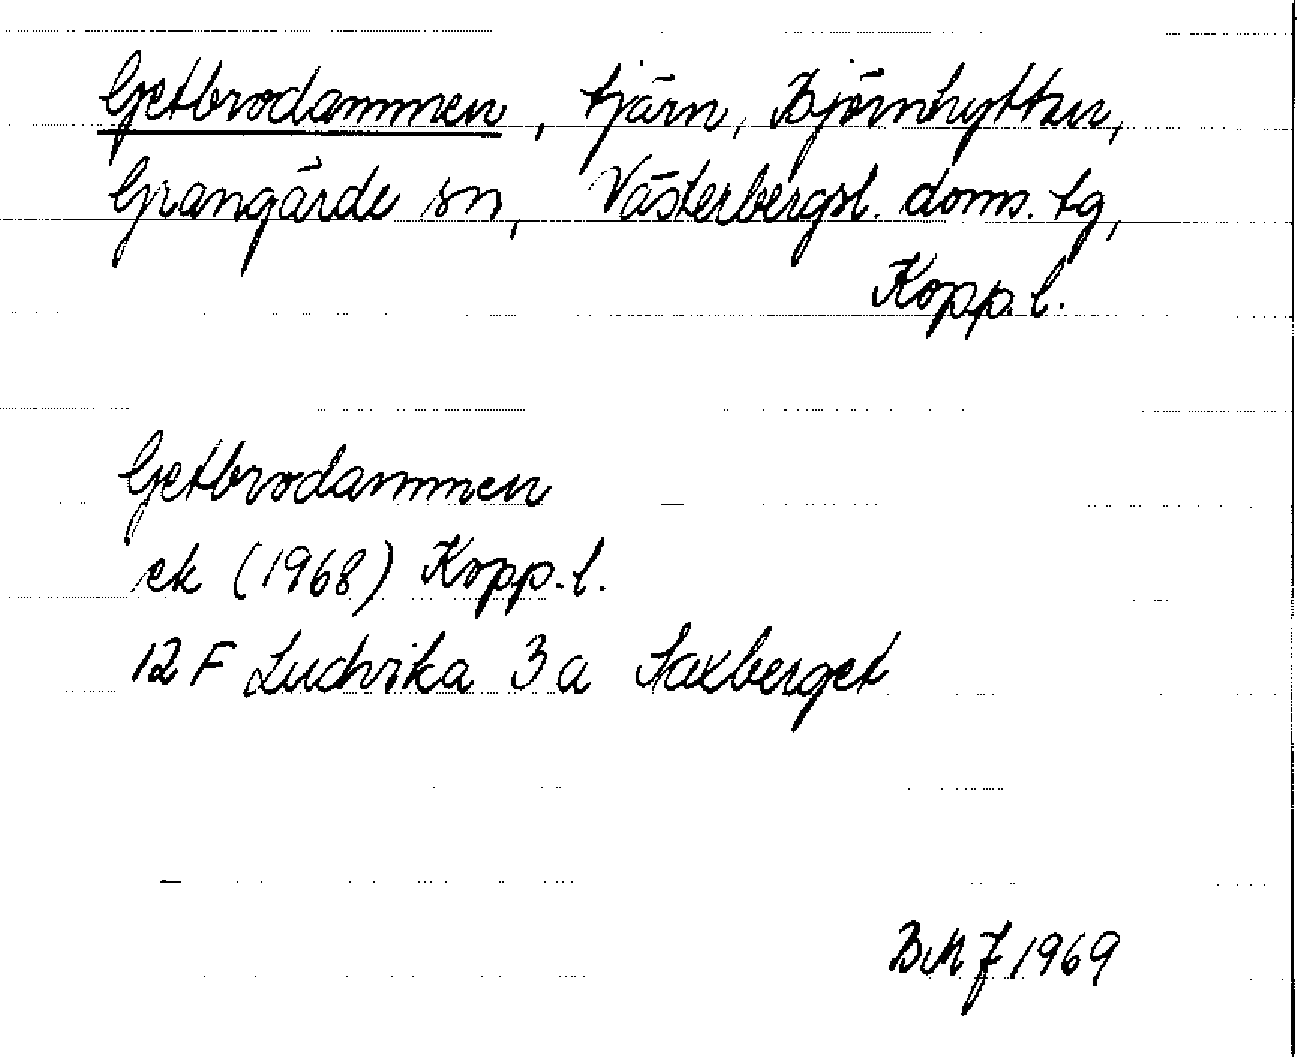 Getbrodammen, tjärn, Björnhyttan,
Grangärde sn, Västerbergsl. doms. tg,
Kopp. l.
Getbrodammen
ek (1968) Kopp. l.
12 F Ludvika 3 a Saxberget
BMJ 1969